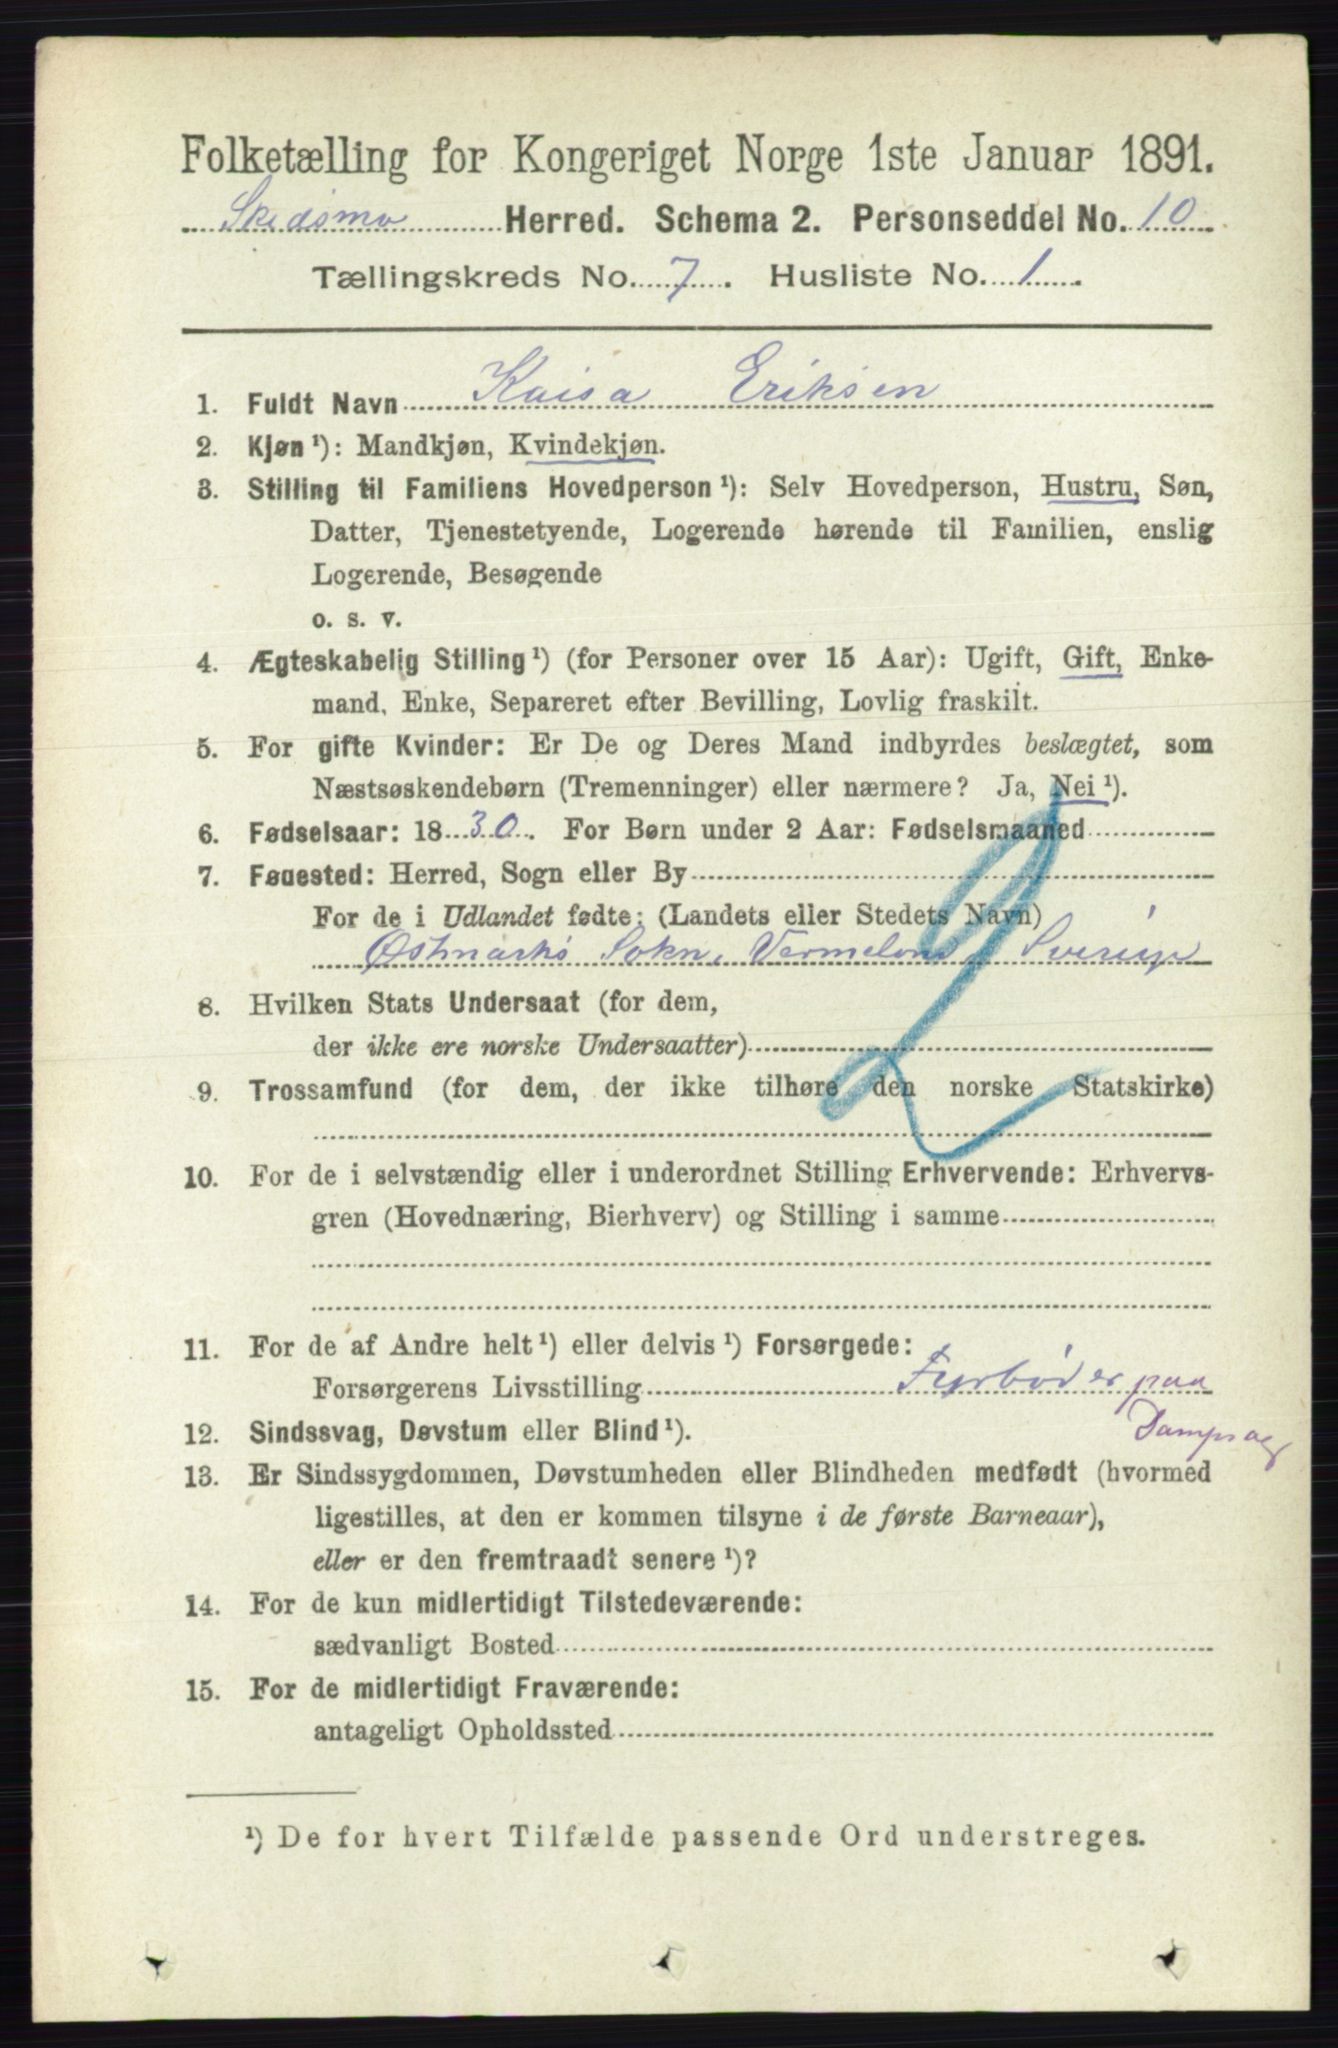 Folketælling for Kongeriget Norge 1ste Januar 1891.
Skedsmo Herred. Schema 2. Personseddel No. 10
Tællingskreds No. 7. Husliste No. 1
1. Fuldt Navn Kaisa Eriksen
2. Kjøn ¹): Mandkjøn, Kvindekjøn.
3. Stilling til Familiens Hovedperson ¹): Selv Hovedperson, Hustru, Søn,
Datter, Tjenestetyende, Logerende hørende til Familien, enslig
Logerende, Besøgende
o. s. v.
4. Ægteskabelig Stilling ¹) (for Personer over 15 Aar): Ugift, Gift, Enke-
mand, Enke, Separeret efter Bevilling, Lovlig fraskilt.
5. For gifte Kvinder: Er De og Deres Mand indbyrdes beslægtet, som
Næstsøskendebørn (Tremenninger) eller nærmere? Ja, Nei ¹).
6. Fødselsaar: 1830. For Børn under 2 Aar: Fødselsmaaned
7. Fødested: Herred, Sogn eller By
For de i Udlandet fødte: (Landets eller Stedets Navn)
Østmarks Sokn, Vermeland, Sverige
8. Hvilken Stats Undersaat (for dem,
der ikke ere norske Undersaatter)
9. Trossamfund (for dem, der ikke tilhøre den norske Statskirke)
10. For de i selvstændig eller i underordnet Stilling Erhvervende: Erhvervs-
gren (Hovednæring, Bierhverv) og Stilling i samme
11. For de af Andre helt ¹) eller delvis ¹) Forsørgede:
Forsørgerens Livsstilling Fyrbøder paa
Dampsag
12. Sindssvag, Døvstum eller Blind ¹).
13. Er Sindssygdommen, Døvstumheden eller Blindheden medfødt (hvormed
ligestilles, at den er kommen tilsyne i de første Barneaar),
eller er den fremtraadt senere ¹)?
14. For de kun midlertidigt Tilstedeværende:
sædvanligt Bosted
15. For de midlertidigt Fraværende:
antageligt Opholdssted
¹) De for hvert Tilfælde passende Ord understreges.